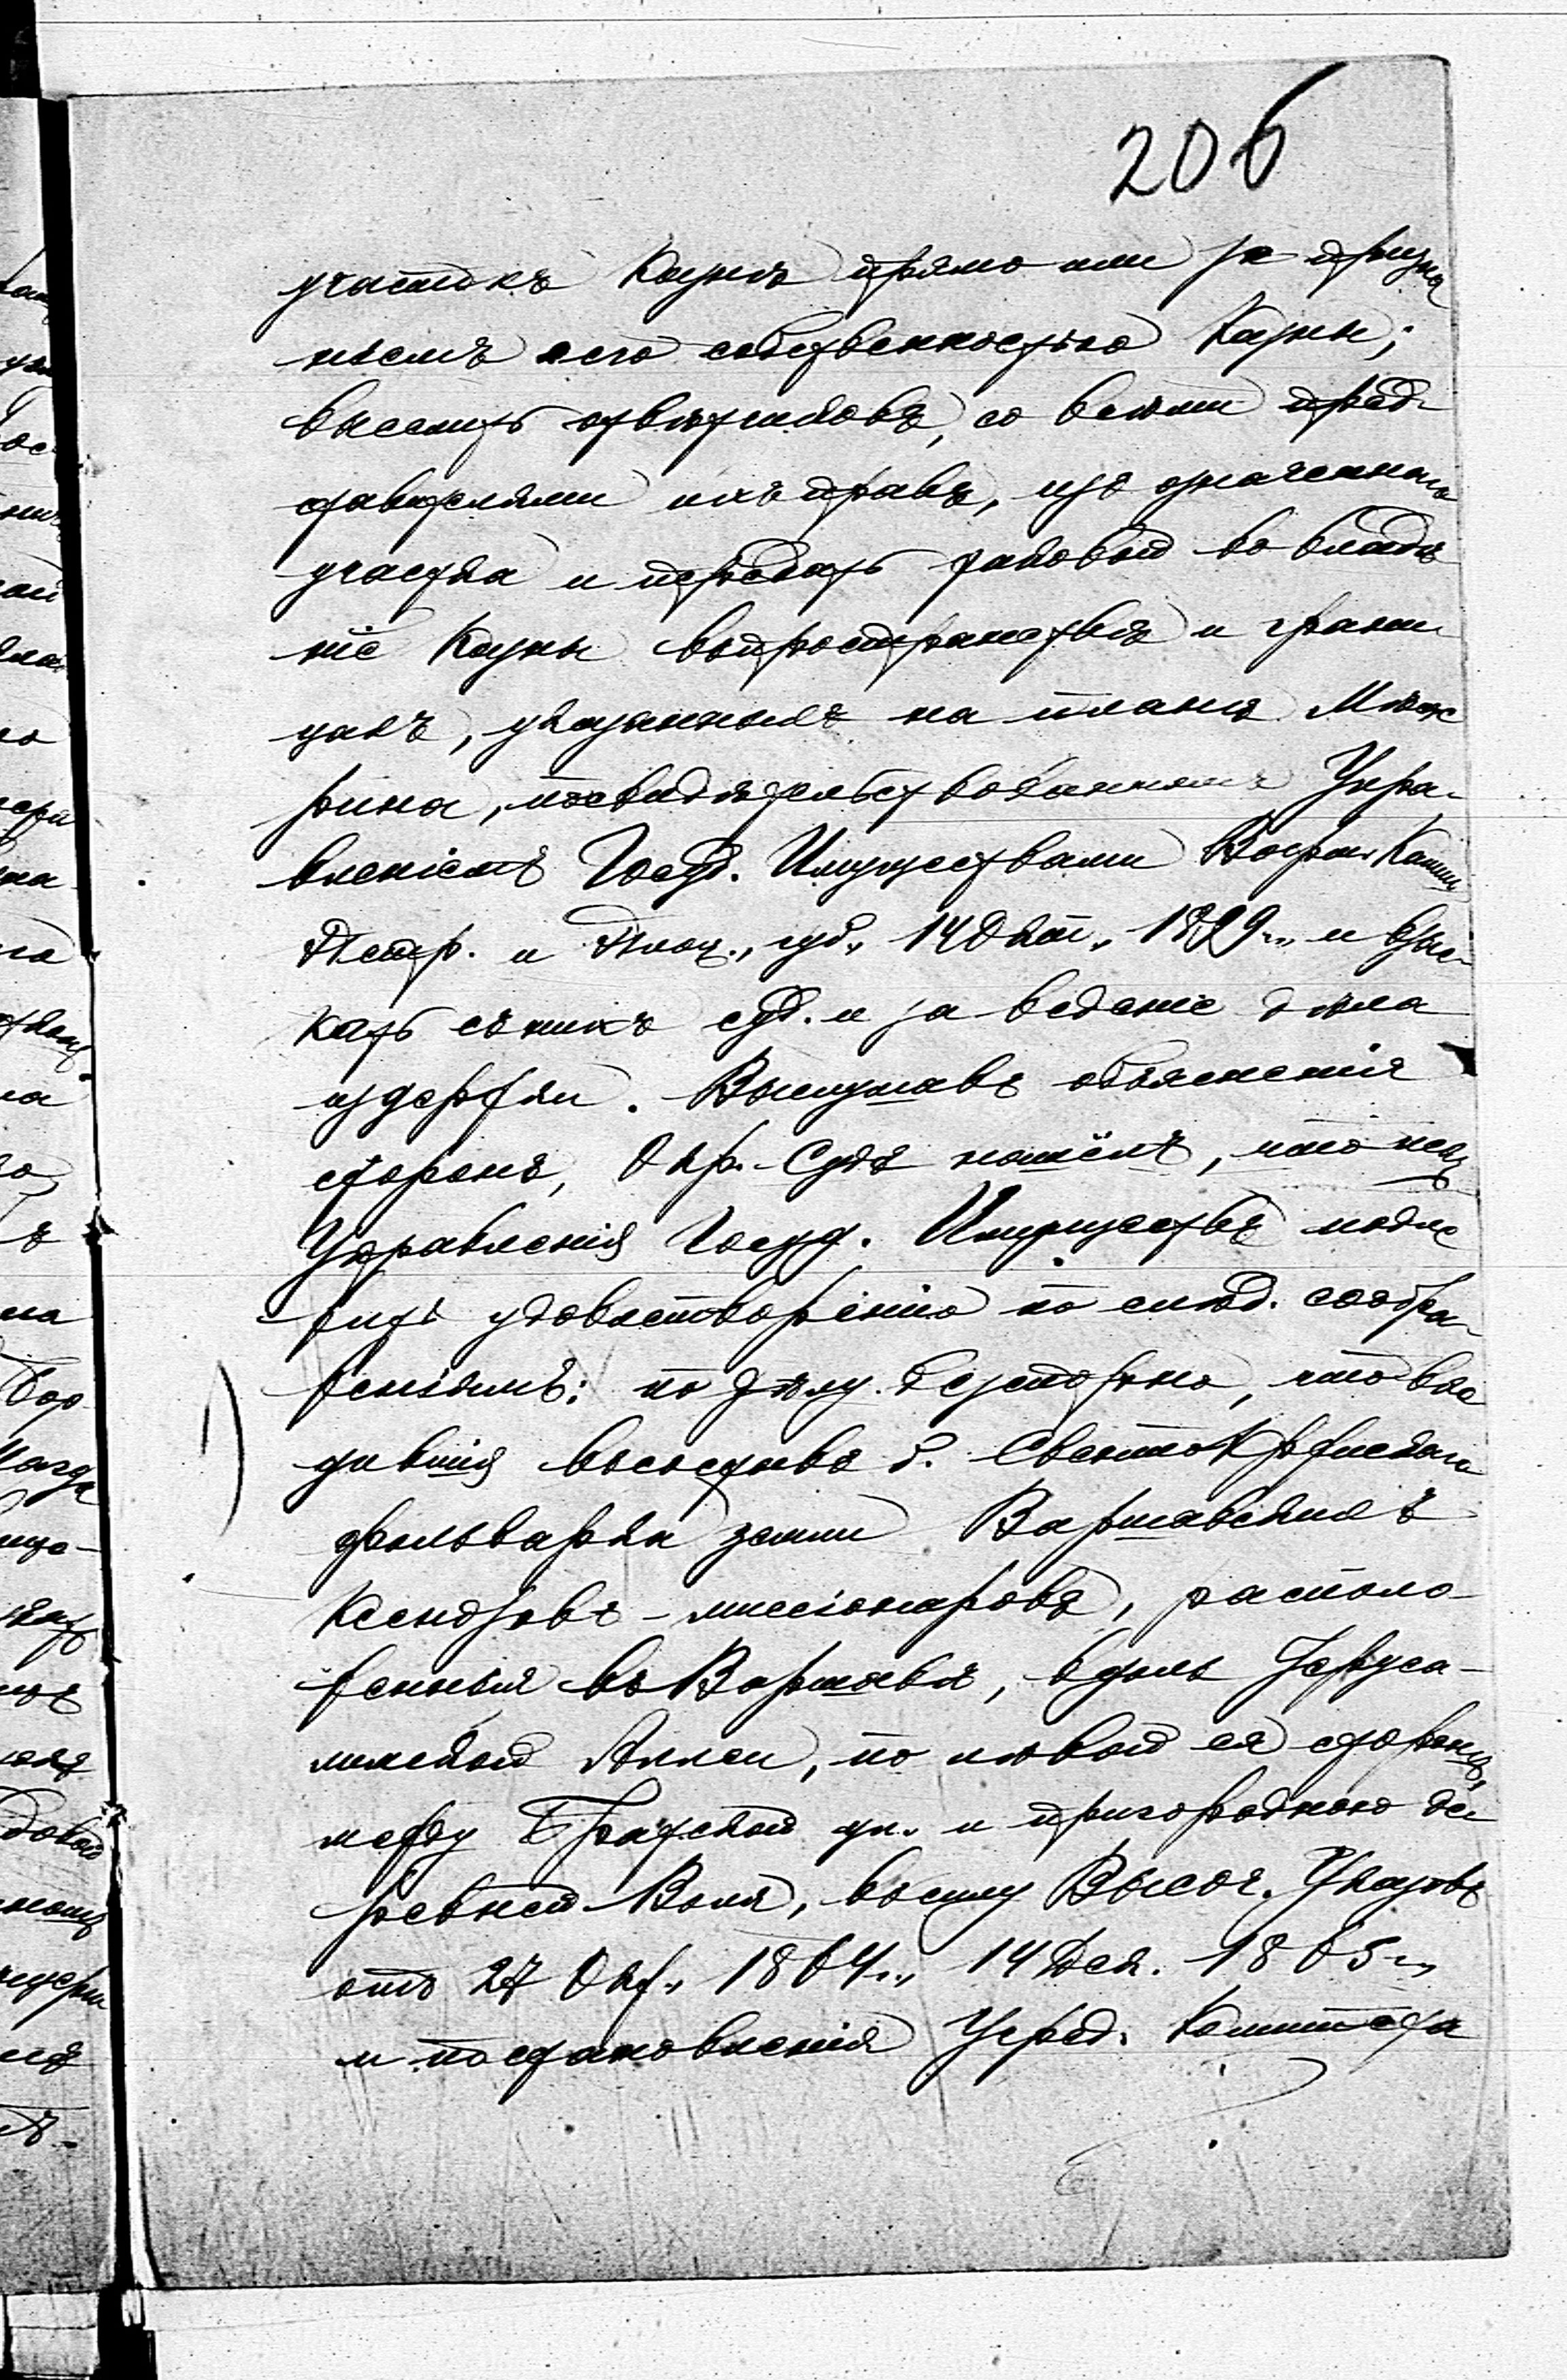 206
участокъ Казнѣ прямо или за призна
ніемъ его собственностью Казны;
выселить отвѣтчиковъ, со всѣми пред-
ставителями ихъ правъ, изъ означеннаго
участка и передать таковой во владѣ
ніе Казны въ пространствѣ и грани
цахъ, указанныхъ на планѣ
посвидѣтельствованномъ Упра-
вленіемъ Госуд. Имуществами Варш. Калиш
Петр. и губ., 14 Окт. 1899 г., и взыс-
кать съ нихъ суд. и за веденіе дѣла
издержки. Выслушавъ объясненія
сторонъ, Окр. Судъ нашёлъ, что искъ
Управленія Госуд. Имуществъ подле
житъ удовлетворенію по слѣд. сообра-
женіямъ: по дѣлу безспорно, что вхо
1) дившія въ составъ б. Свентокржискаго
фольварка земли Варшавскихъ
Ксендзовъ-миссіонаровъ, располо-
женныя въ Варшавѣ, вдоль Іеруса-
лимской Аллеи, по лѣвой ея сторонѣ,
между Братской ул. и пригородною де
ревней Воля, въ силу Высоч. Указовъ
отъ 27 Окт. 1864 г., 14 Дек. 1865 г.,
и постановленія Учред. Комитета